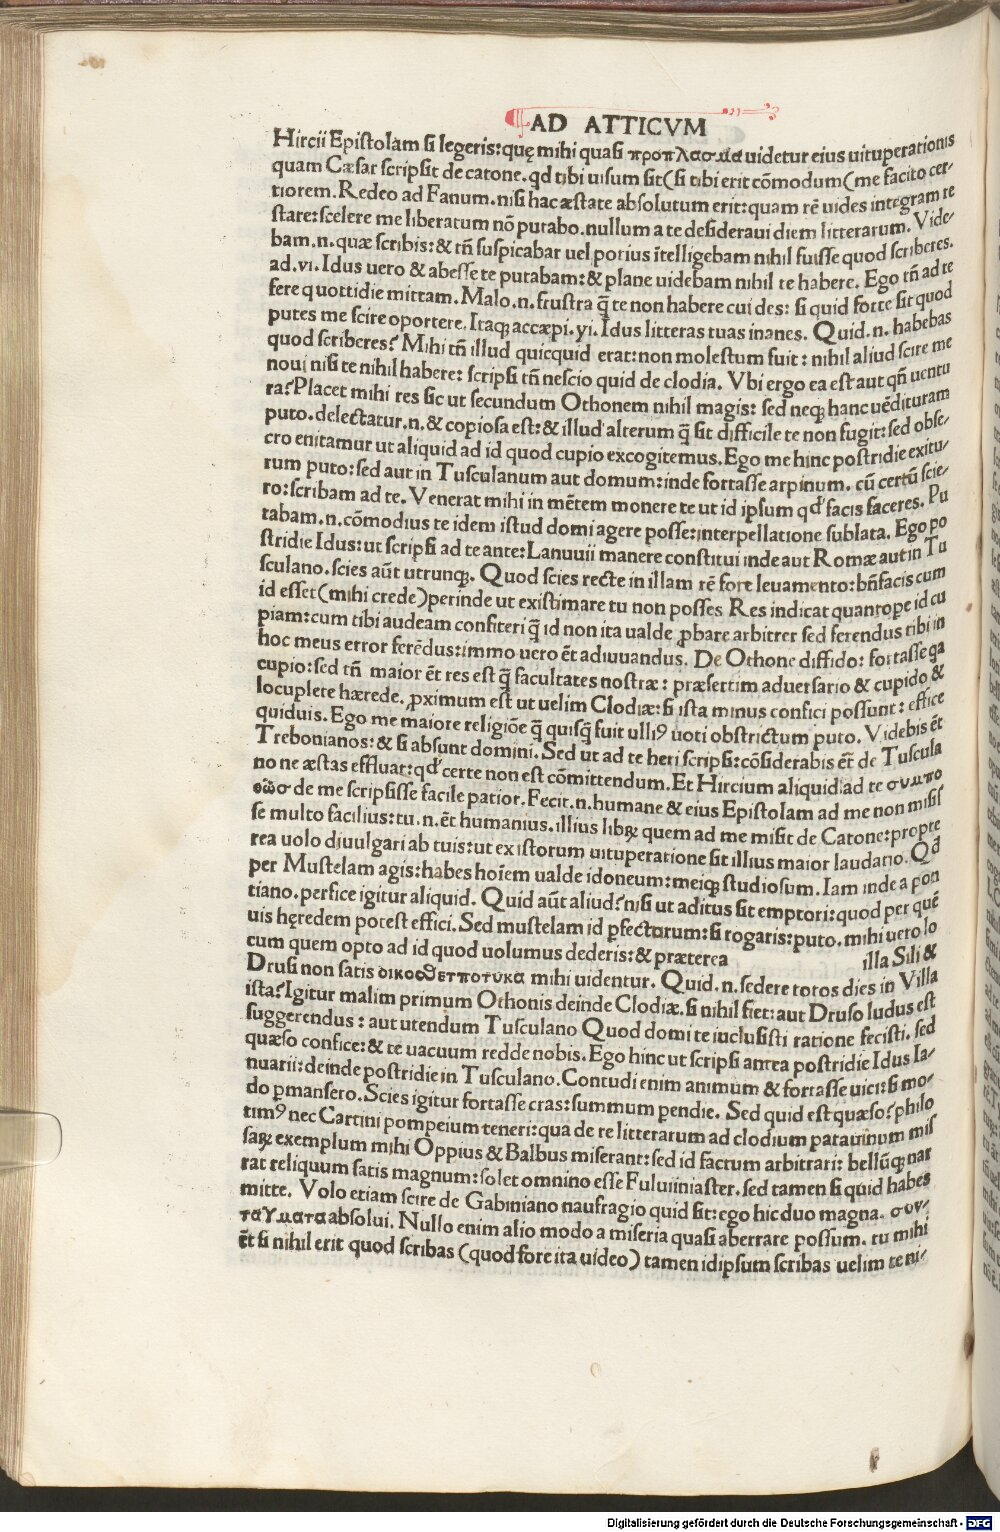 AD ATTICVM
Hircii Epistolam si legeris: quę mihi quasi προπλασμα uidetur eius uituperationis
quam Cæsar scripsit de catone. qd tibi uisum sit (si tibi erit cōmodum (me facito cer-
tiorem. Redeo ad Fanum. nisi hac æstate absolutum erit: quam rē uides integram re
stare: scelere me liberatum nō putabo. nullum a te desideraui diem litterarum. Vide-
bam .n. quæ scribis: & tñ suspicabar uel potius ītelligebam nihil fuisse quod scriberes.
ad .vi. Idus uero & abesse te putabam: & plane uidebam nihil te habere. Ego tñ ad te
fere quottidie mittam. Malo .n. frustra q̄ te non habere cui des: si quid forte sit quod
putes me scire oportere. Itaqꝫ accæpi .vi. Idus litteras tuas inanes. Quid .n. habebas
quod scriberes? Mihi tñ illud quicquid erat: non molestum fuit: nihil aliud scire me
noui nisi te nihil habere: scripsi tñ nescio quid de clodia. Vbi ergo ea est aut qñ uentu
ra? Placet mihi res sic ut secundum Othonem nihil magis: sed neqꝫ hanc uēdituram
puto. delectatur .n. & copiosa est: & illud alterum q̄ sit difficile te non fugit: sed obse-
cro enitamur ut aliquid ad id quod cupio excogitemus. Ego me hinc postridie exitu-
rum puto: sed aut in Tusculanum aut domum: inde fortasse arpinum. cū certū scie-
ro: scribam ad te. Venerat mihi in mētem monere te ut id ipsum qđ facis faceres. Pu
tabam .n. cōmodius te idem istud domi agere posse: interpellatione sublata. Ego po
stridie Idus: ut scripsi ad te ante: Lanuuii manere constitui inde aut Romæ aut in Tu
sculano. scies aūt utrunqꝫ. Quod scies recte in illam rē fore leuamento: bñ facis cum
id esset (mihi crede) perinde ut existimare tu non posses Res indicat quantope id cu
piam: cum tibi audeam confiteri q̄ id non ita ualde ꝓbare arbitrer sed ferendus tibi in
hoc meus error ferēdus: immo uero ēt adiuuandus. De Othone diffido: fortasse qa
cupio: sed tñ maior ēt res est q̄ facultates nostræ: præsertim aduersario & cupido &
locuplete hærede. ꝓximum est ut uelim Clodiæ: si ista minus confici possunt: effice
quiduis. Ego me maiore religiōe q̄ quisq̄ fuit ulliꝰ uoti obstrictum puto. Videbis ēt
Trebonianos: & si absunt domini. Sed ut ad te heri scripsi: cōsiderabis ēt de Tuscula
no ne æstas effluat: qđ certe non est cōmittendum. Et Hircium aliquid ad te συμπο
θῶσ de me scripsisse facile patior. Fecit .n. humane & eius Epistolam ad me non misis
se multo facilius: tu .n. ēt humanius. illius librꝫ quem ad me misit de Catone: propte
rea uolo diuulgari ab tuis: ut ex istorum uituperatione sit illius maior laudatio. Qđ
per Mustelam agis: habes hoīem ualde idoneum: meiqꝫ studiosum. Iam inde a pon
tiano. perfice igitur aliquid. Quid aūt aliud? nisi ut aditus sit emptori: quod per quē
uis hęredem potest effici. Sed mustelam id ꝑfecturum: si rogaris: puto. mihi uero lo
cum quem opto ad id quod uolumus dederis: & præterea illa Sili &
Drusi non satis οικοσθεπποτυκα mihi uidentur. Quid .n. sedere totos dies in Villa
ista? Igitur malim primum Othonis deinde Clodiæ. si nihil fiet: aut Druso ludus est
suggerendus: aut utendum Tusculano Quod domi te inclusisti ratione fecisti. sed
quæso confice: & te uacuum redde nobis. Ego hinc ut scripsi antea postridie Idus Ia-
nuarii: deinde postridie in Tusculano. Contudi enim animum & fortasse uici: si mo-
do ꝑmansero. Scies igitur fortasse cras: summum pendie. Sed quid est quæso? philo
timꝰ nec Cartini pompeium teneri: qua de re litterarum ad clodium patauinum mis
sarꝫ exemplum mihi Oppius & Balbus miserant: sed id factum arbitrari: bellūqꝫ nar
rat reliquum satis magnum: solet omnino esse Fuluiiniaster. sed tamen si quid habes
mitte. Volo etiam scire de Gabiniano naufragio quid sit: ego hic duo magna. συν-
ταγματα absolui. Nullo enim alio modo a miseria quasi aberrare possum. tu mihi
ēt si nihil erit quod scribas (quod fore ita uideo) tamen id ipsum scribas uelim te ni-
Digitalisierung gefördert durch die Deutsche Forschungsgemeinschaft - DFG